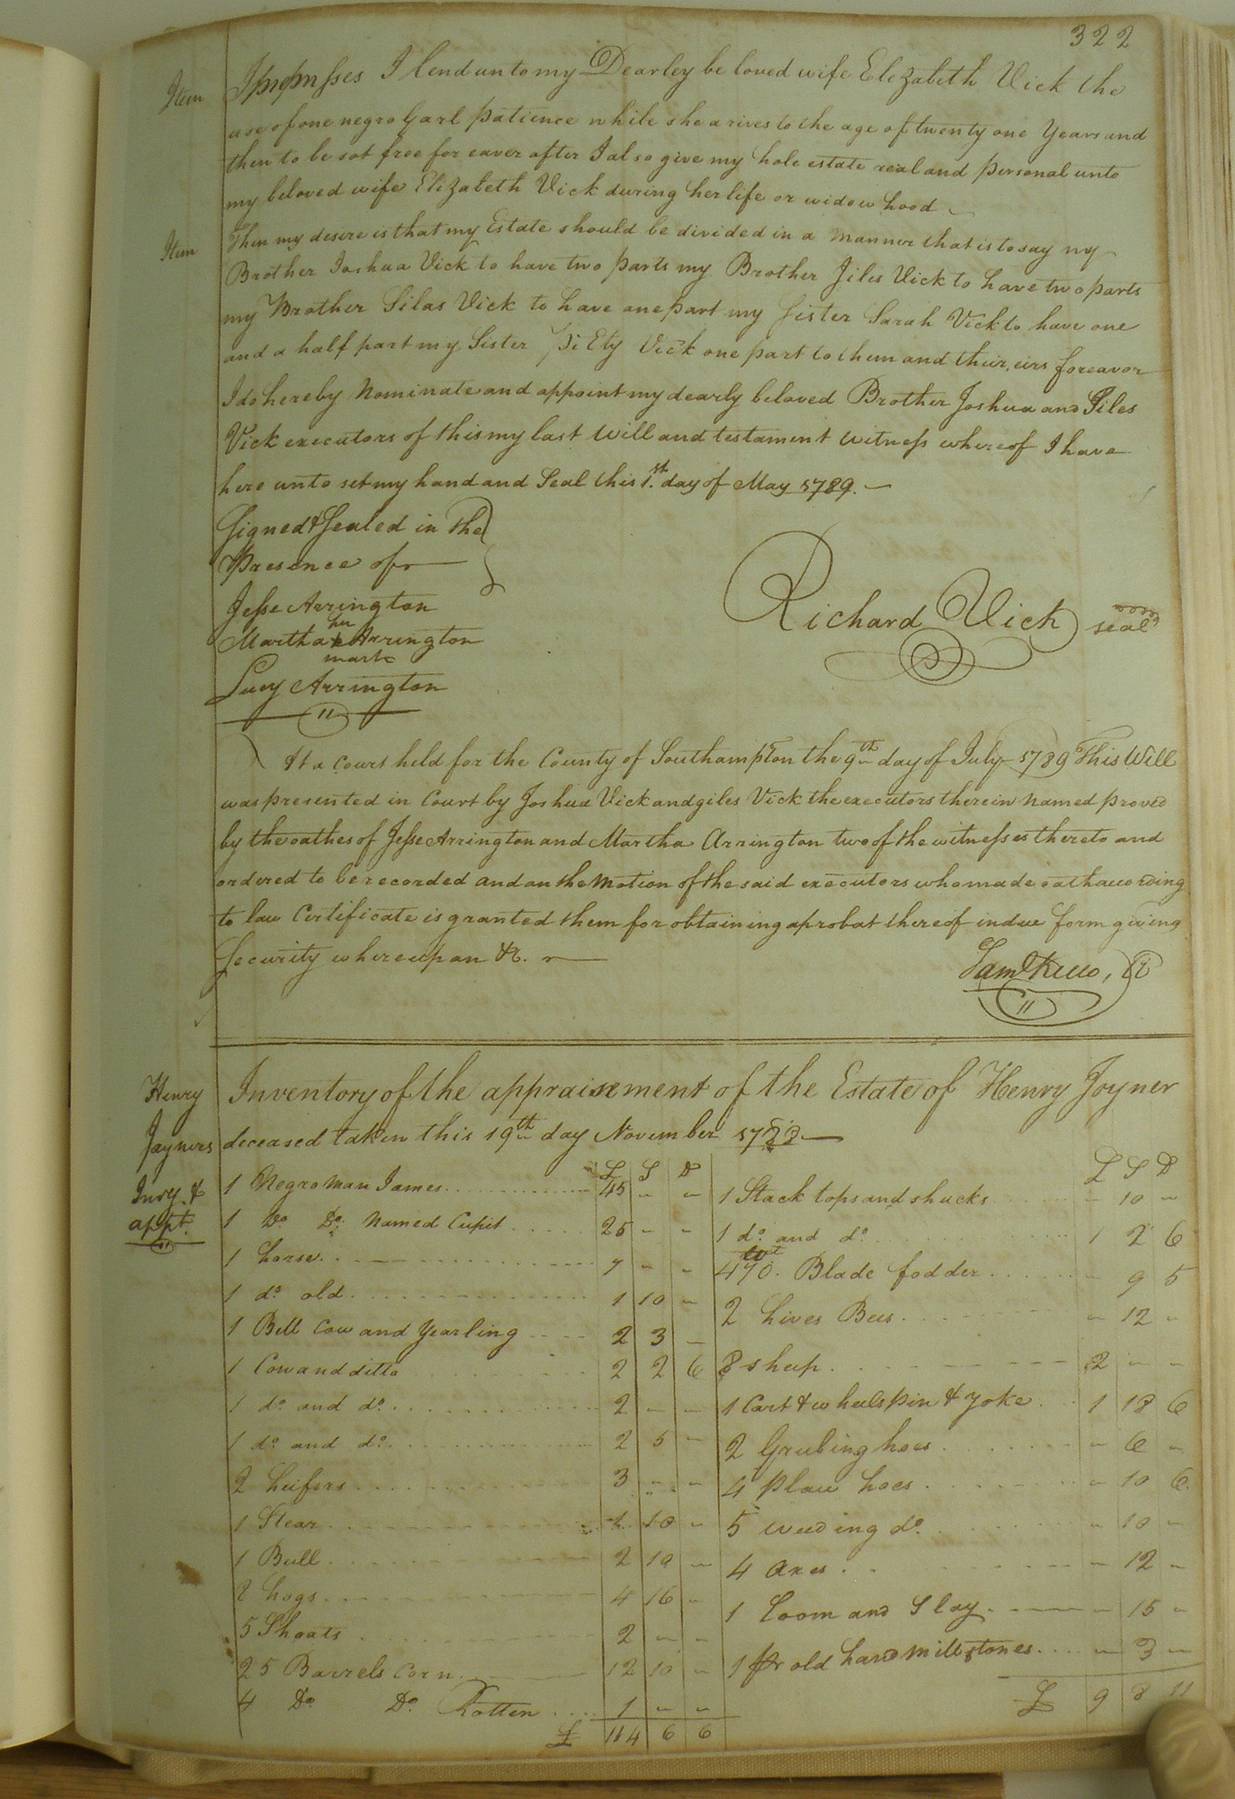 322
Item Impmsses I lend unto my Dearley be loved wife Elizabeth Vick the
use of one negro Garl patience while she arives to the age of twenty one Years and
then to be sot free for eaver after I also give my hole estate real and personal unto
my beloved wife Elizabeth Vick during her life or widow hood
Item Then my desire is that my Estate should be divided in a manner that is to say my
Brother Joshua Vick to have two parts my Brother Jiles Vick to have two parts
my Brother Silas Vick to have one part my Sister Sarah Vick to have one
and a half part my Sister Pi Ety Vick one part to them and their eirs foreavor
I do hereby Nominate and appoint my dearly beloved Brother Joshua and Giles
Vick executors of this my last Will and testament Witness whereof I have
here unto set my hand and Seal this 1st. day of May 1789.
Signed & Sealed in the
Presence of
Jesse Arrington
her
Martha x Arrington
mark
Lucy Arrington
Richard Vick seal
At a Court held for the County of Southampton the 9th day of July 1789 This Will
was presented in Court by Joshua Vick and giles Vick the executors therein named proved
by the oathes of Jesse Arrington and Martha Arrington two of the witnesses thereto and
ordered to be recorded and on the Motion of the said executors who made oath according
to law Certificate is granted them for obtaining a probat thereof in due form giving
Security whereupon &c.
Saml Kello,
Henry
Joyners
Invy. &
appt.
Inventory of the appraisement of the Estate of Henry Joyner
deceased taken this 19th day November 1788
£ S D
1 Negro man James 45 - -
1 Do Do. Named Cupit 25 - -
1 horse 7 - -
1 do old 1 10 -
1 Bell Cow and Yearling 2 3 -
1 Cow and ditto 2 2 6
1 do and do 2 - -
1 do and do 2 5 -
2 heifers 3 - -
1 Stear 1 10 -
1 Bull 2 10 -
8 hogs 4 16 -
5 Shoats 2 - -
25 Barrels Corn 12 10 -
4 Do Do. Rotten 1 - -
£ 114 6 6
£ S D
1 Stack tops and shucks - 10 -
1 do and do 1 2 6
470 wt Blade fodder - 9 5
2 hives Bees - 12 -
8 sheep 2 - -
1 Cart & wheels pin & Yoke 1 18 6
2 Grubing hoes - 6 -
4 plow hoes - 10 6
5 weeding do - 10 -
4 axes - 12 -
1 Loom and Slay - 15 -
1 pr old hand mill stones - 3 -
£ 9 8 11